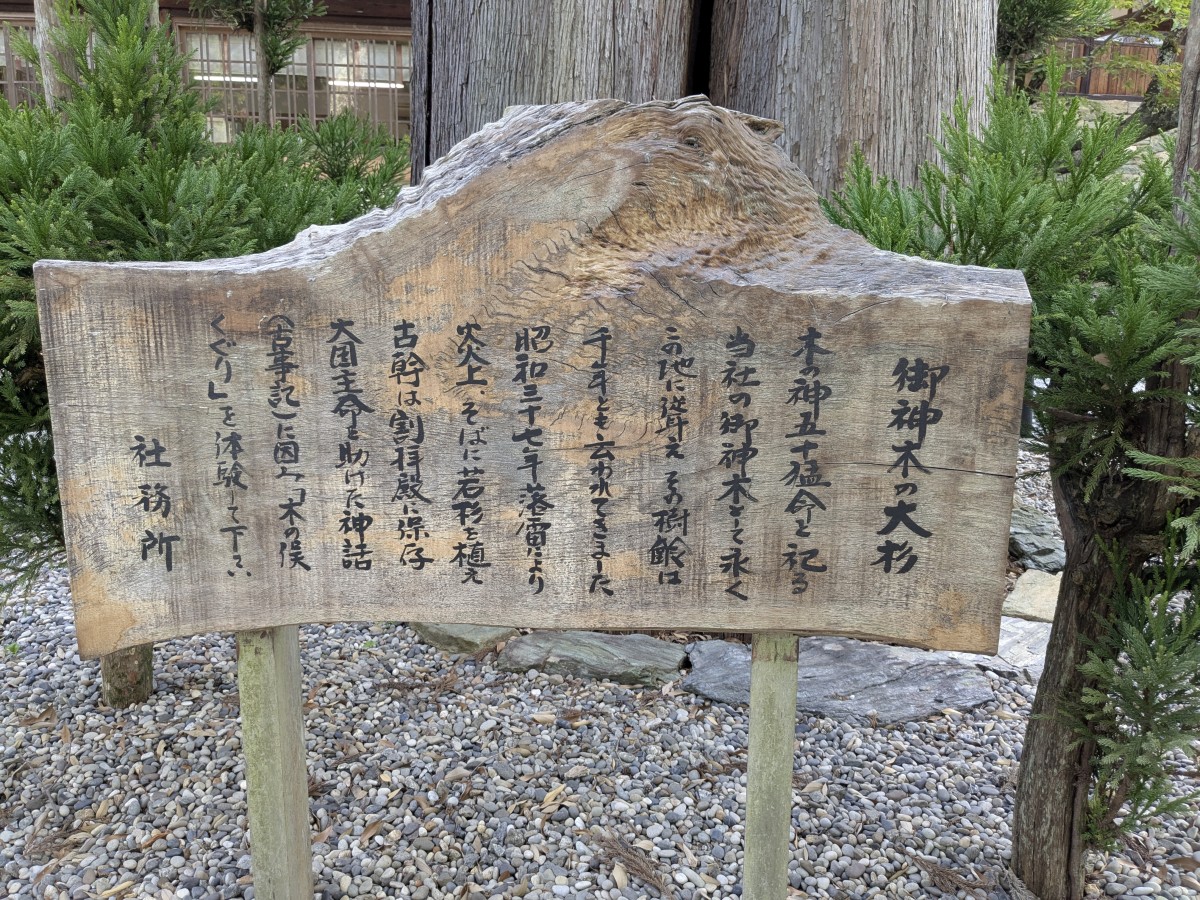 御神木の大杉
木の神五十猛命を祀る
当社の御神木として永く
この地に聳えその樹齢は
千年とも云われてきました
昭和三十七年落雷により
炎上、そばに若杉を植え
古幹は割拝殿に保存
大国主命を助けた神話
(古事記)に因んで「木の俣
くぐり」を体験して下さい
社務所